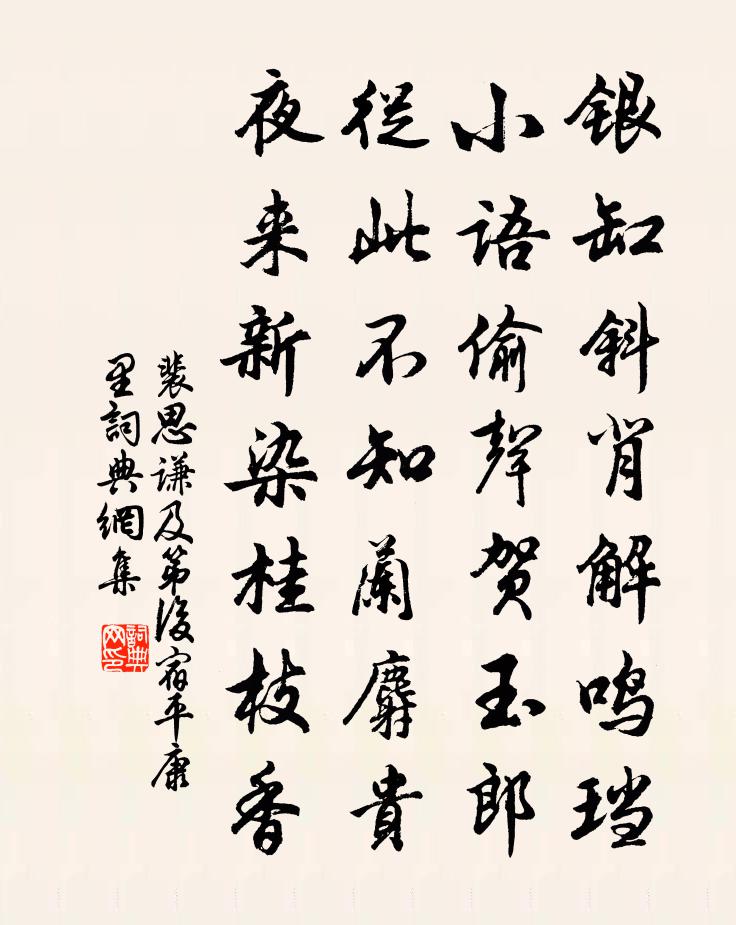 银缸斜背解鸣珰
小语偷聲贺玉郎
從此不知蘭麝貴
夜来新染桂枝香
裴思谦及第後宿平康
里詞典網集
詞典网印